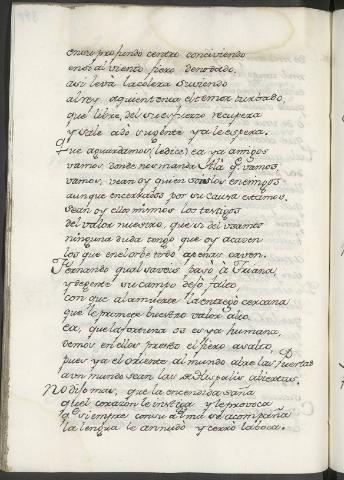 en su profundo centro conciviendo
en si al viento fiero denodado,
asi leva la colera suviendo
al rey a quien tenia el temor turbado,
que libre, del su esfuerzo recupera
y sale ado su gente ya le espera.
Que aguardamos, (le dice) ea ya amigos
vamos, donde nos manda Ala q. vamos,
vamos, vean oy quien son los enemigos
aunque encerrados por su causa estamos.
sean oy ellos mismos los testigos
del valor nuestro, que si del usamos
ninguna duda tengo que oy acaven
los que en el orbe todo apenas caven.
Fernando qual saveis pasò à Triana,
y de gente su campo dejò falto,
con que al a muerte la tengo cercana
que le promete nuestro valor alto
ea, que la fortuna os es ya humana,
demos en ellos presto el fiero asalto
pues ya el oriente al mundo abre las Puertas
a un mundo sean las de Hispalis abiertas.
No dijo mas, que la encendida saña
que el corazon le instiga y le provoca
la q.e siempre con su alma se acompaña
la lengua le annudò y cerrò la boca.